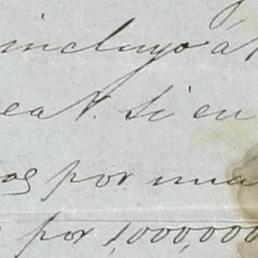 incluyo á
eat. Si en
os por una
por 1,000,000